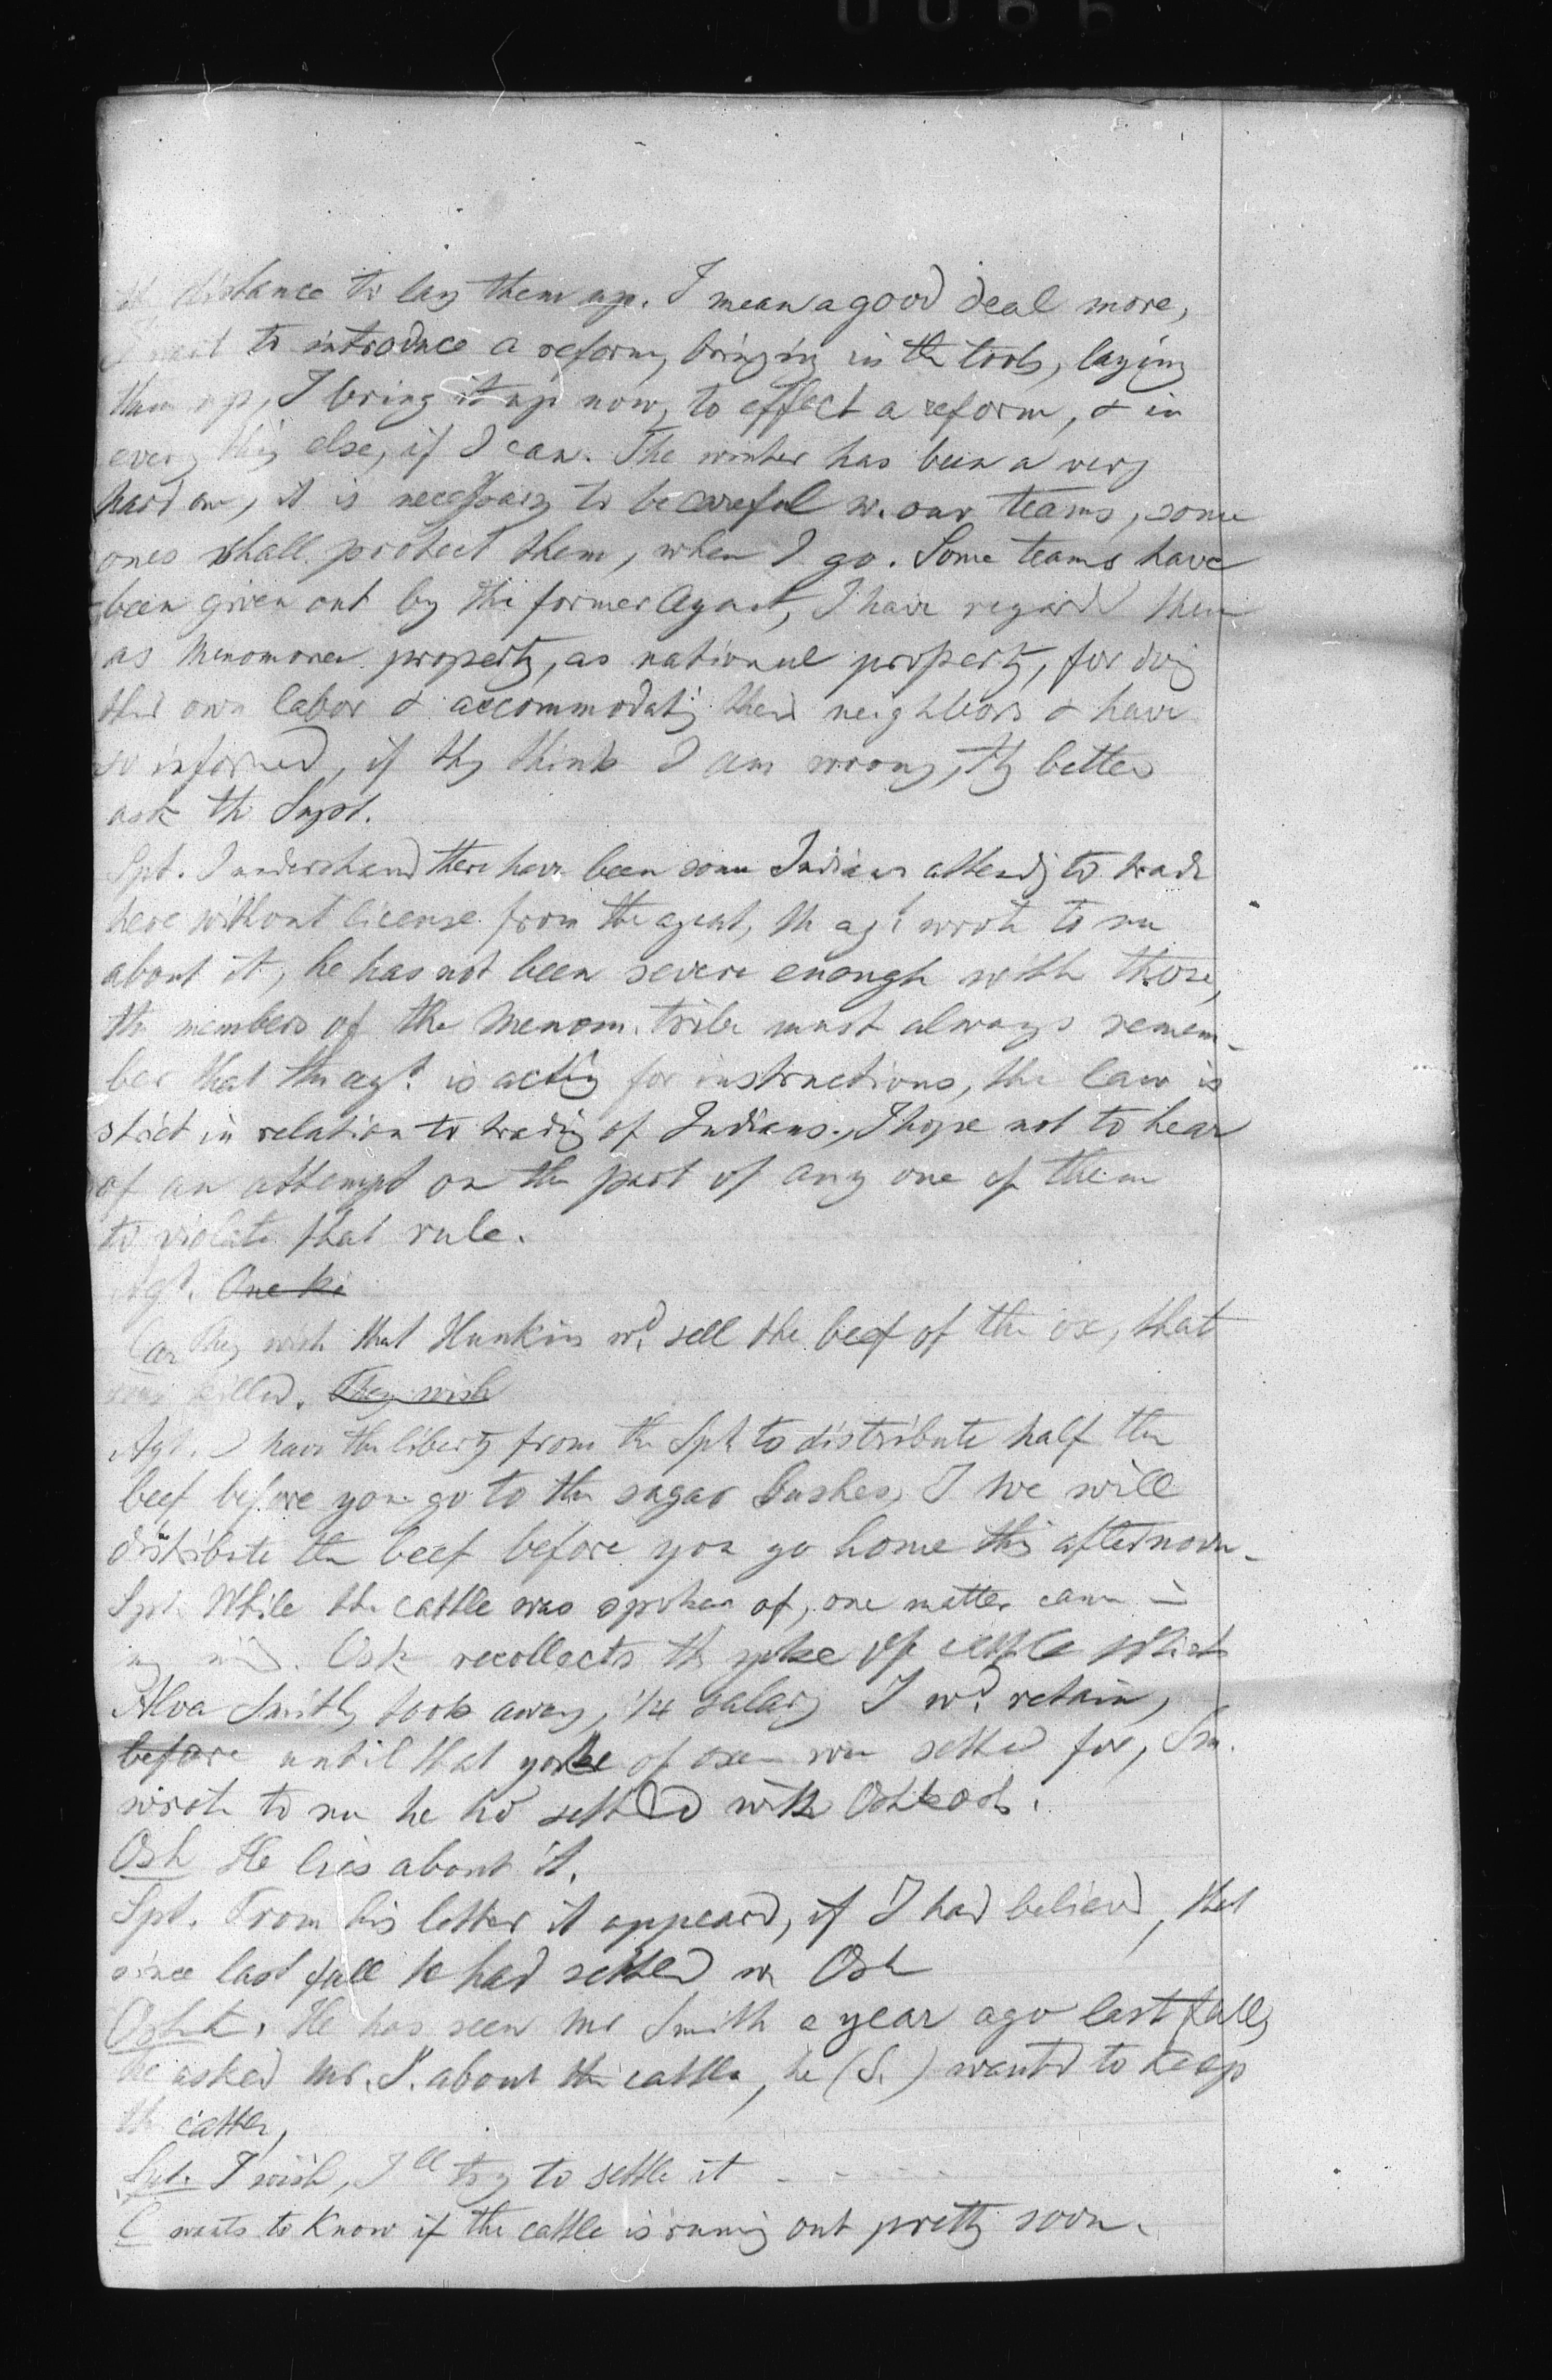 0066
distance to lay them up. I mean a good deal more,
I want to introduce a reform, bringing in the tools, laying
them up, I bring it up now, to effect a reform, & in
every thing else, if I can. The winter has been a very
hard one, it is necessary to be careful w. our teams, some
ones shall protect them, when I go. Some teams have
been given out by the former Agent, I have regard them
as Menomonee property, as national property, for doig
their own labor & accommodatig their neighbors & have
so informed, if thy think I am wrong, thy better
ask th Supt.
Spt. I understand there have been some Indians attendg to trade
here without license from the agent, th agt wrote to me
about it, he has not been severe enough with those,
the members of the Menom. tribe must always remem-
ber that the agt. is actig for instructions, the law is
strict in relation to tradig of Indians., I hope not to hear
of an attempt on the part of any one of them
to violate that rule.
Agt. One ki
Car They wish that Hunkins wd. sell the beef of the ox, that
was killed. They wish
Agt. I have the liberty from the Spt to distribute half the
beef before you go to the sugar bushes, I we will
distribute the beef before you go home this afternoon-
Spt. While the cattle was spoken of, one matter came in
my mind. Osk recollects th yoke of cattle which
Alva Smith, took away, 1/4 salary I wd. retain,
before until that yoke of oxen was settled for, Sm.
wrote to me he hd settled with Oshkosh.
Osh He lies about it.
Spt. From his letter it appeard, if I had believd, that
since last fall he had settled w Osh
Oshk. He has seen Mr Smith a year ago last fall,
he asked Mr. S. about the cattle, he (S.) wantd to keep
th cattle,
Spt. I wish, I'll try to settle it - - - - -
C wants to know if the cattle is runnig out pretty soon.